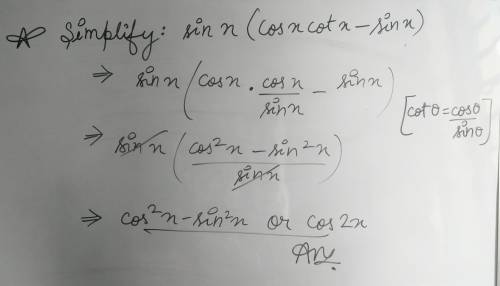 ☆ Simplify: sin x (cos x cot x - sin x)
⇒ sin x (cos x · cos x/sin x - sin x) [cot θ = cos θ/sin θ]
⇒ sin x ((cos²x - sin²x)/sin x)
⇒ cos²x - sin²x or cos 2x
Ans.